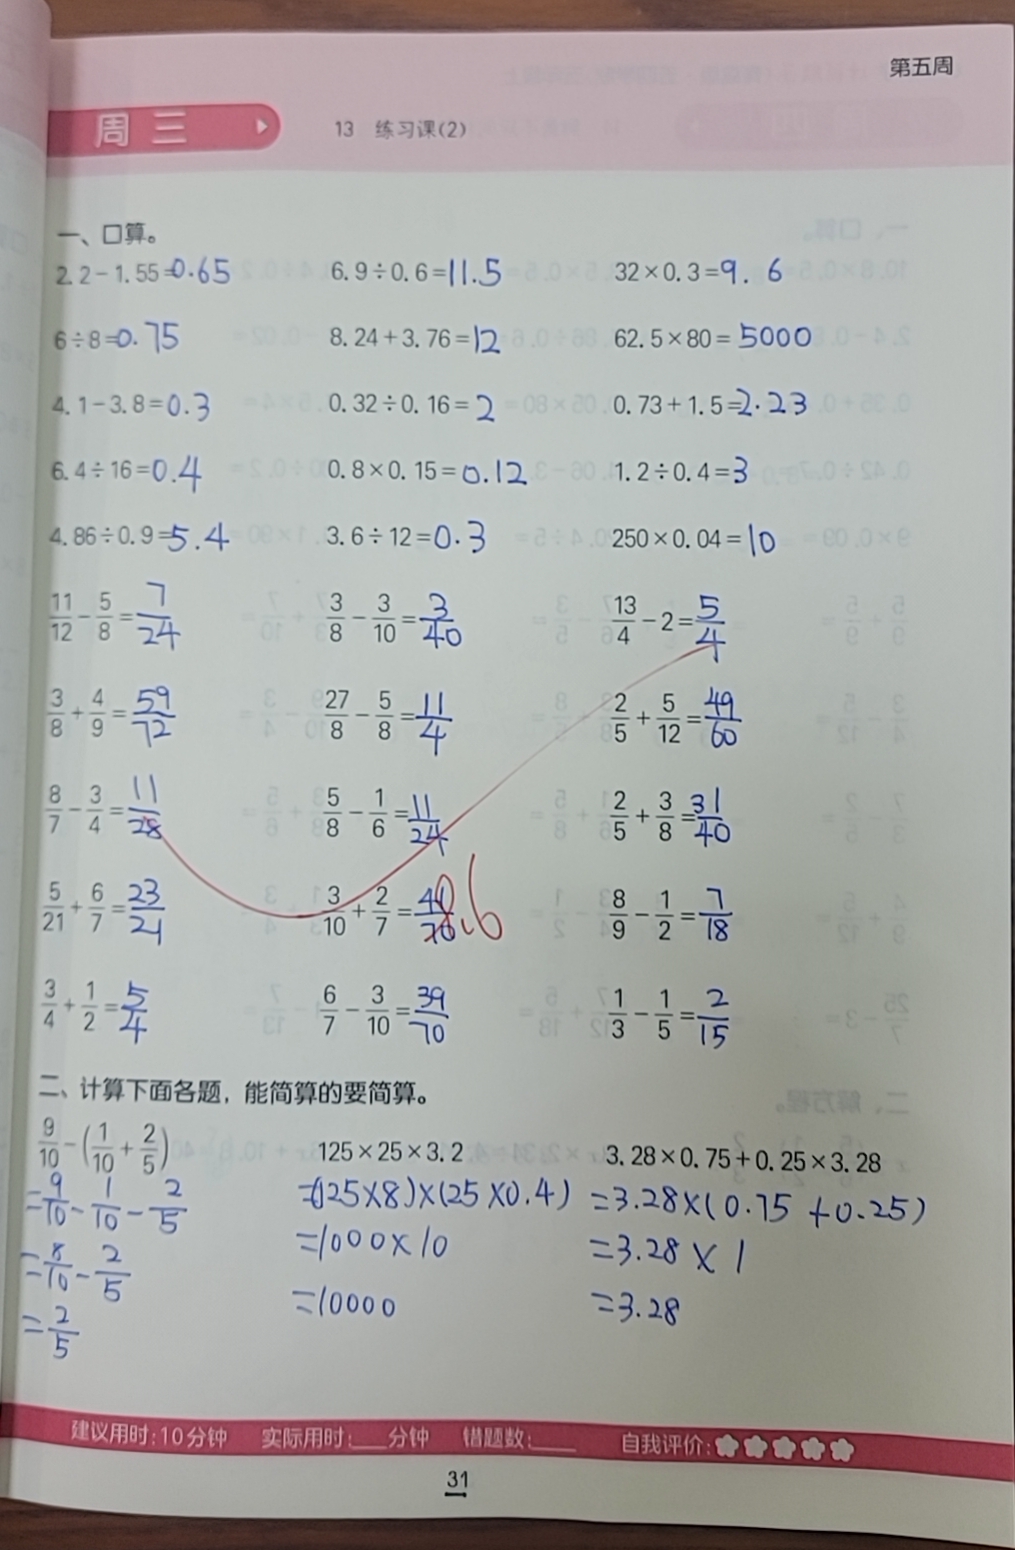 第五周
周三 13 练习课(2)
一、口算。
2.2-1.55=0.65 6.9÷0.6=11.5 32×0.3=9.6
6÷8=0.75 8.24+3.76=12 62.5×80=5000
4.1-3.8=0.3 0.32÷0.16=2 0.73+1.5=2.23
6.4÷16=0.4 0.8×0.15=0.12 1.2÷0.4=3
4.86÷0.9=5.4 3.6÷12=0.3 250×0.04=10
11/12-5/8=7/24 3/8-3/10=3/40 13/4-2=5/4
3/8+4/9=59/72 27/8-5/8=11/4 2/5+5/12=49/60
8/7-3/4=11/28 5/8-1/6=11/24 2/5+3/8=31/40
5/21+6/7=23/21 3/10+2/7=41/70 8/9-1/2=7/18
3/4+1/2=5/4 6/7-3/10=39/70 1/3-1/5=2/15
二、计算下面各题，能简算的要简算。
9/10-(1/10+2/5) 125×25×3.2 3.28×0.75+0.25×3.28
=9/10-1/10-2/5 =(125×8)×(25×0.4) =3.28×(0.75+0.25)
=8/10-2/5 =1000×10 =3.28×1
=2/5 =10000 =3.28
建议用时:10分钟 实际用时:___分钟 错题数:____ 自我评价:
31